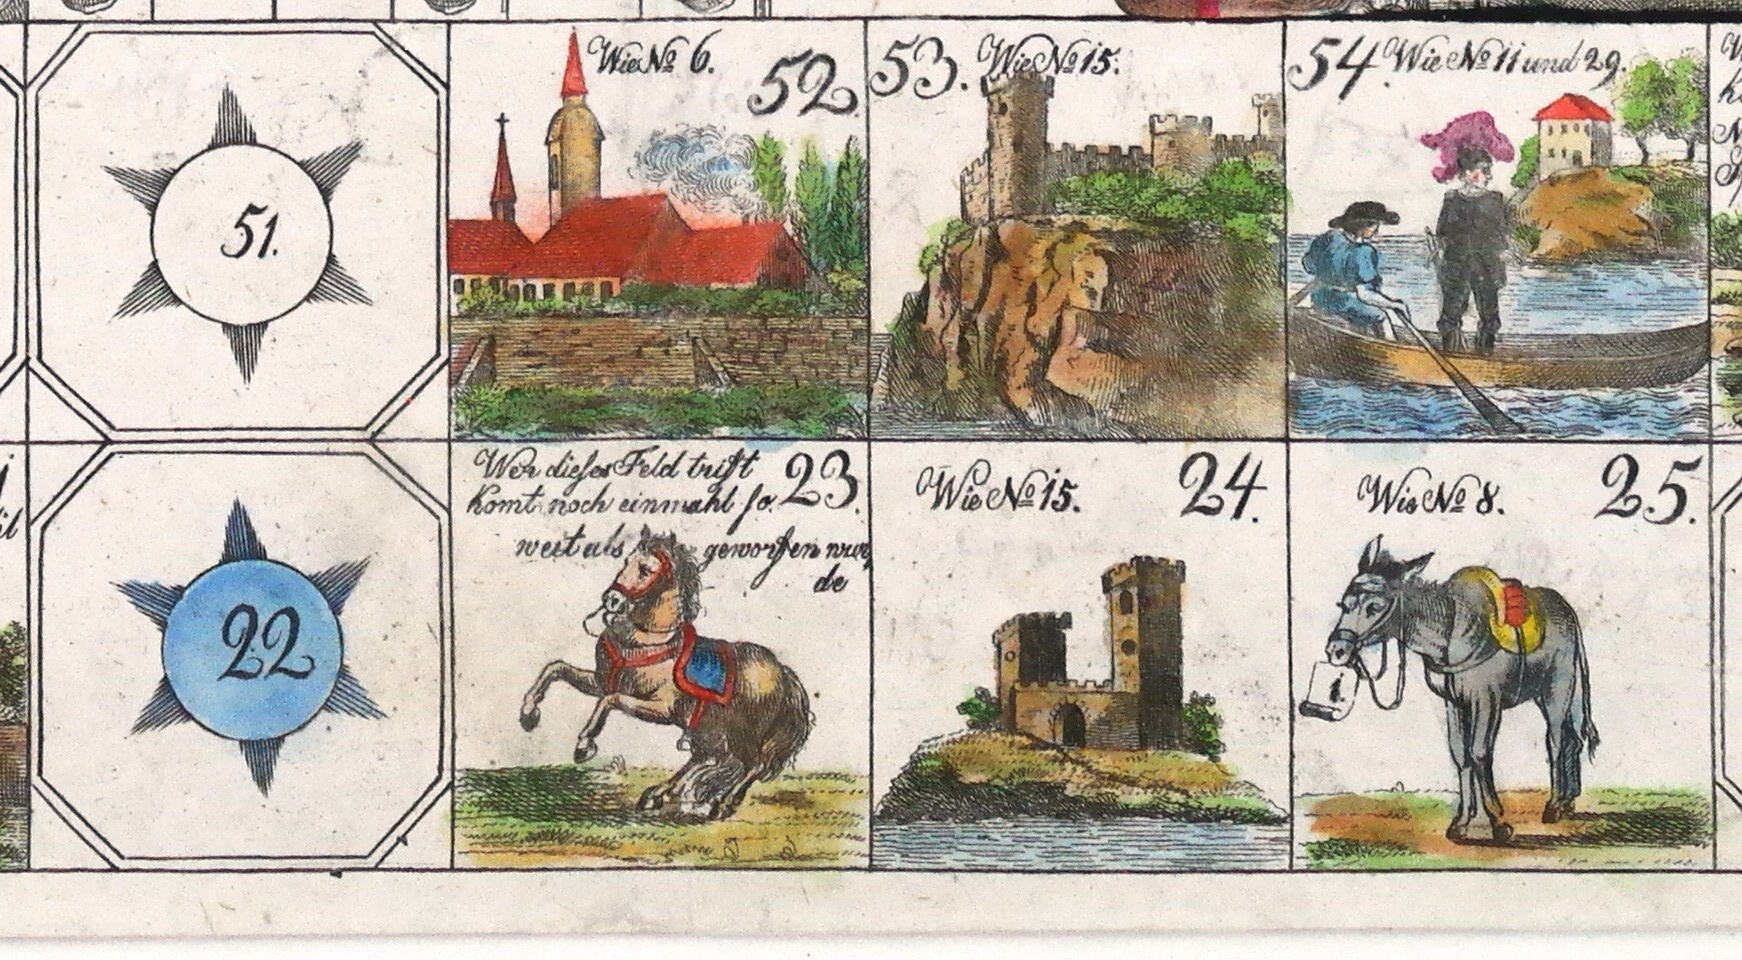 51.
Wie No 6. 52.
53. Wie No 15.
54. Wie No 11 und 29.
22
Wer dieses Feld trift 23.
komt noch einmahl so
weit als geworfen wur
de
Wie No 15. 24.
Wie No 8. 25.
1.